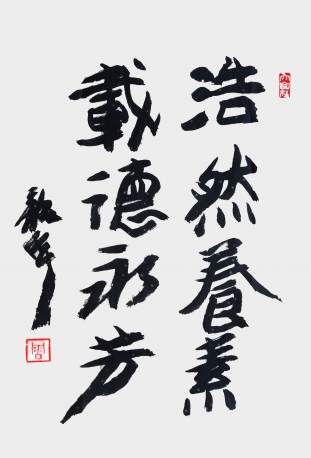 浩然養素
載德永芳